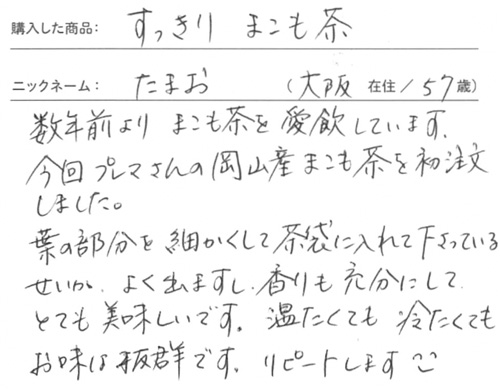 購入した商品: すっきり まこも茶
ニックネーム: たまお (大阪 在住/57歳)
数年前より まこも茶を愛飲しています。
今回プレマさんの岡山産まこも茶を初注文
しました。
葉の部分を細かくして茶袋に入れて下さっている
せいか、よく出ますし、香りも充分にして
とても美味しいです。温たくても 冷たくても
お味は抜群です。リピートします